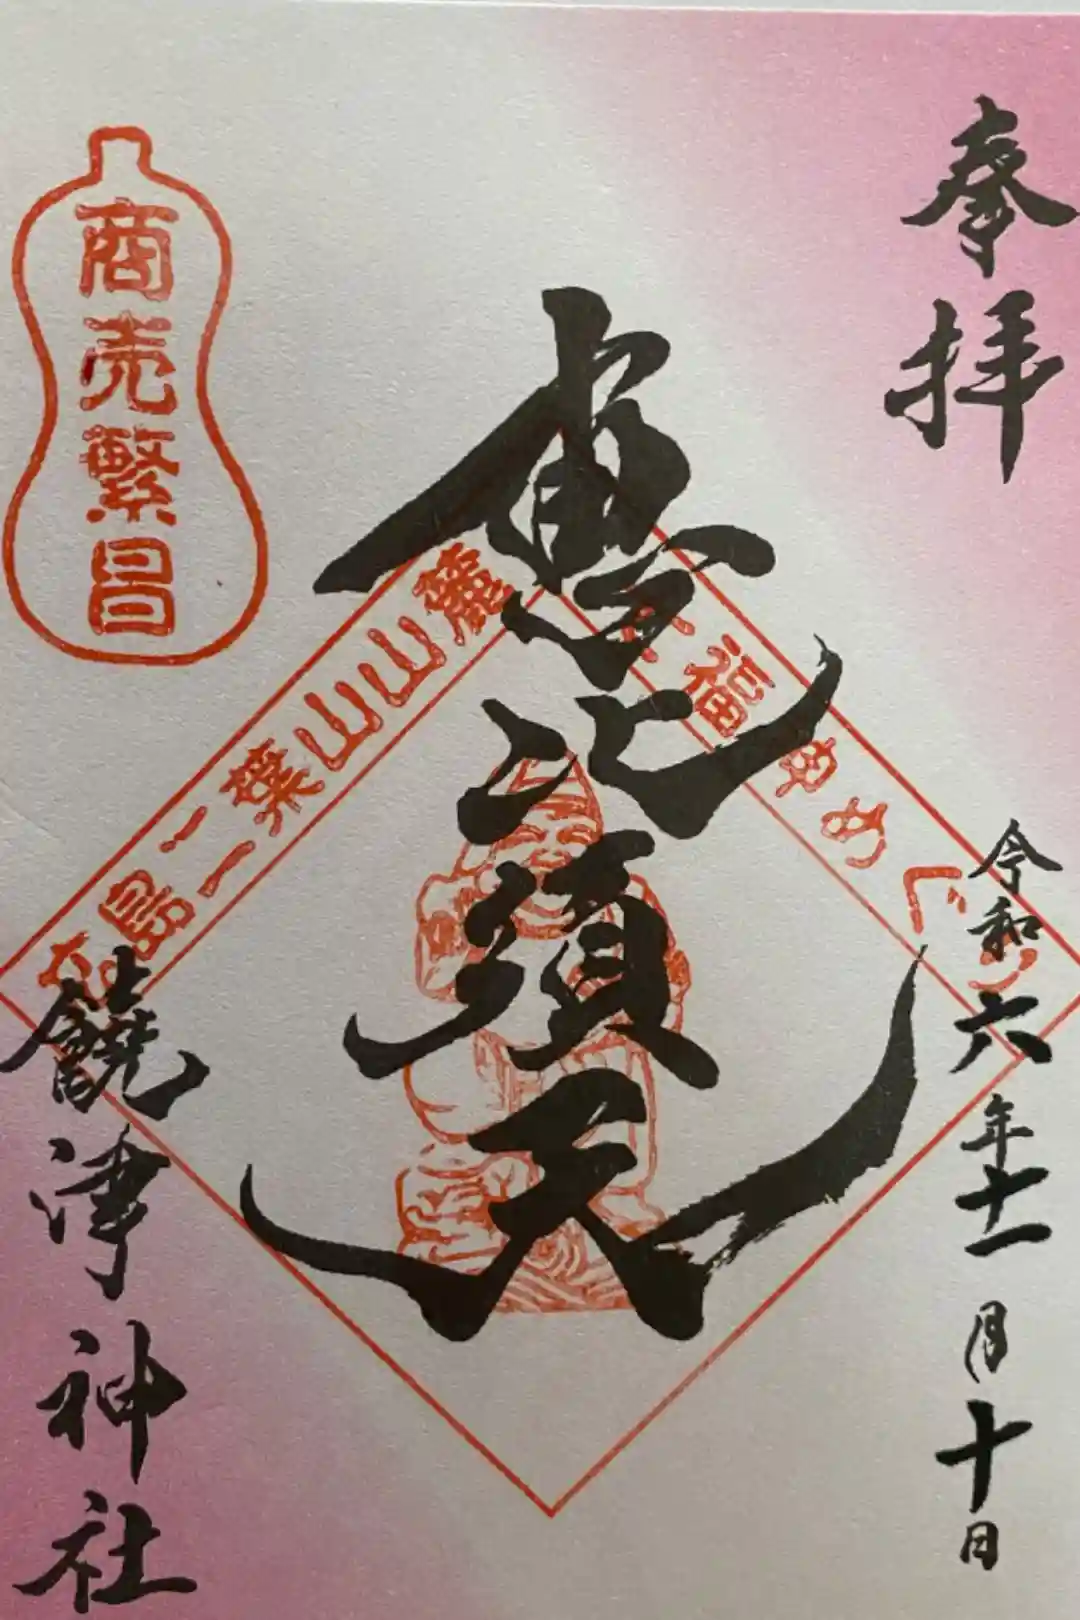 奉拝
令和六年十一月十日
恵比須天
商売繁昌
広島二葉山山麓
七福神めぐり
饒津神社